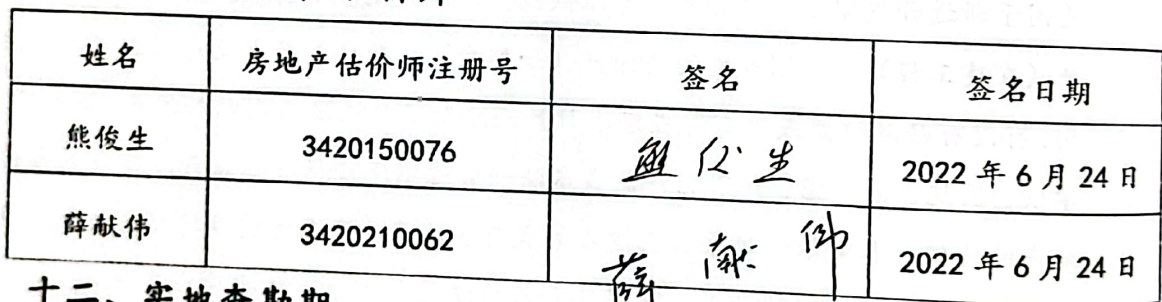 姓名 房地产估价师注册号 签名 签名日期
熊俊生 3420150076 熊俊生 2022 年 6 月 24 日
薛献伟 3420210062 薛献伟 2022 年 6 月 24 日
十二、实地查勘期